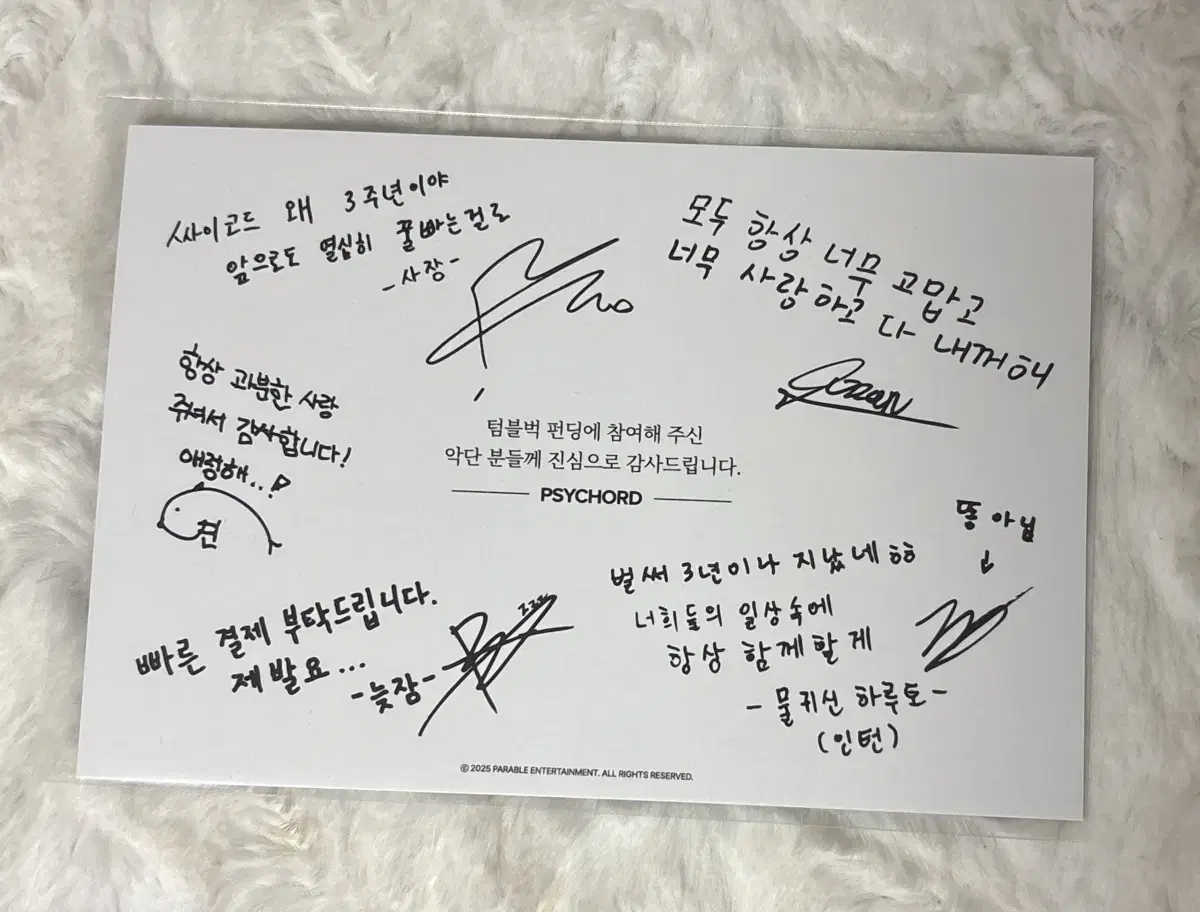 싸이코드 왜 3주년이야
앞으로도 열심히 꿀빠는걸로
-사장-
모두 항상 너무 고맙고
너무 사랑하고 다 내꺼해
항상 과분한 사랑
주셔서 감사합니다!
애정해..!
현
텀블벅 펀딩에 참여해 주신
악단 분들께 진심으로 감사드립니다.
PSYCHORD
빠른 결제 부탁드립니다.
제발요...
-늦잠-
zzz
똥 아님
↓
벌써 3년이나 지났네 ㅎㅎ
너희들의 일상속에
항상 함께할게
-물귀신 하루토-
(인턴)
© 2025 PARABLE ENTERTAINMENT. ALL RIGHTS RESERVED.